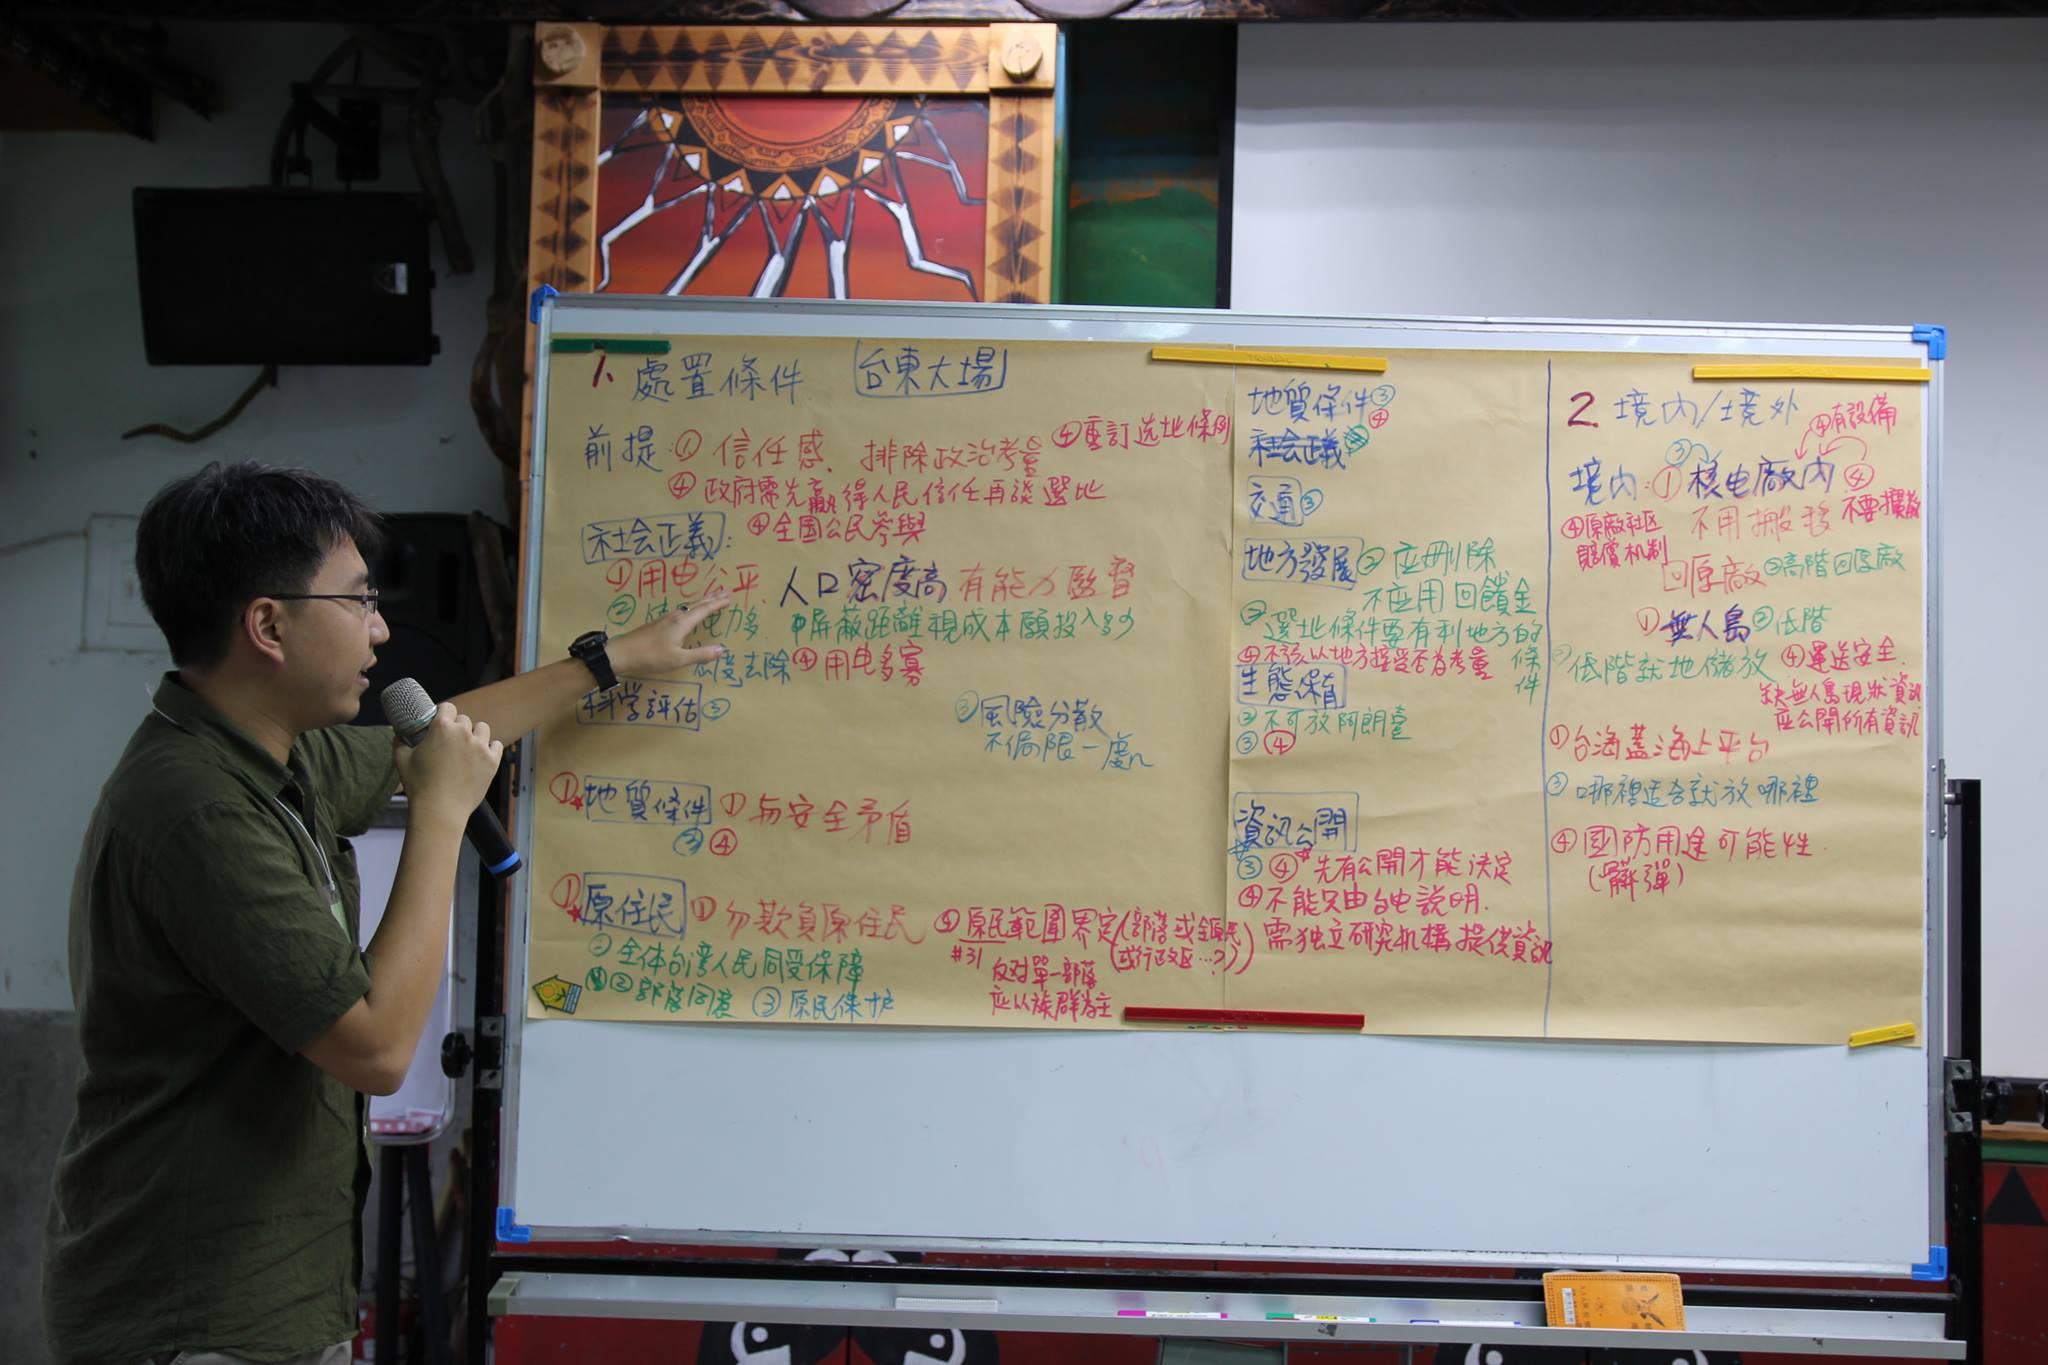 1. 處置條件 台東大場
前提: ① 信任感. 排除政治考量 ④重訂选地條例
④ 政府需先贏得人民信任再談選址
社会正義: ④全国公民参與
① 用电公平. 人口密度高 有能力監督
② 电力多. 屏蔽距離視成本願投入多少
密度去除 ④用电多寡
科学評估 ③
③ 風險分散
不侷限一處
① 地質條件 ① 与安全矛盾
③ ④
① 原住民 ① 勿欺負原住民
② 全体台湾人民同受保障
② 部落同意 ③ 原民保护
④ 原民範圍界定(部落或全原民
#31 (或行政区...?)
反对單一部落
应以族群為主
地質條件③
④
社会正義
交通 ③
地方發展 ② 应刪除
不应用回饋金
② 選址條件要有利地方的
條件
④ 不該以地方接受否為考量
生態保育
③ 不可放阿朗壹
③ ④
資訊公開
③ ④ 先有公開才能決定
④ 不能只由台电説明.
需独立研究机構提供資訊
2. 境內/境外
④有設備
③
境內: ① 核电廠內 ④
不用搬移 不要擴散
④原廠社区
賠償机制
回原廠 ②高階回原廠
① 無人島 ②低階
② 低階就地儲放 ④運送安全.
缺無人島現狀資訊
应公開所有資訊
① 台海蓋海上平台
③ 哪裡适合就放哪裡
④ 國防用途可能性.
(髒彈)